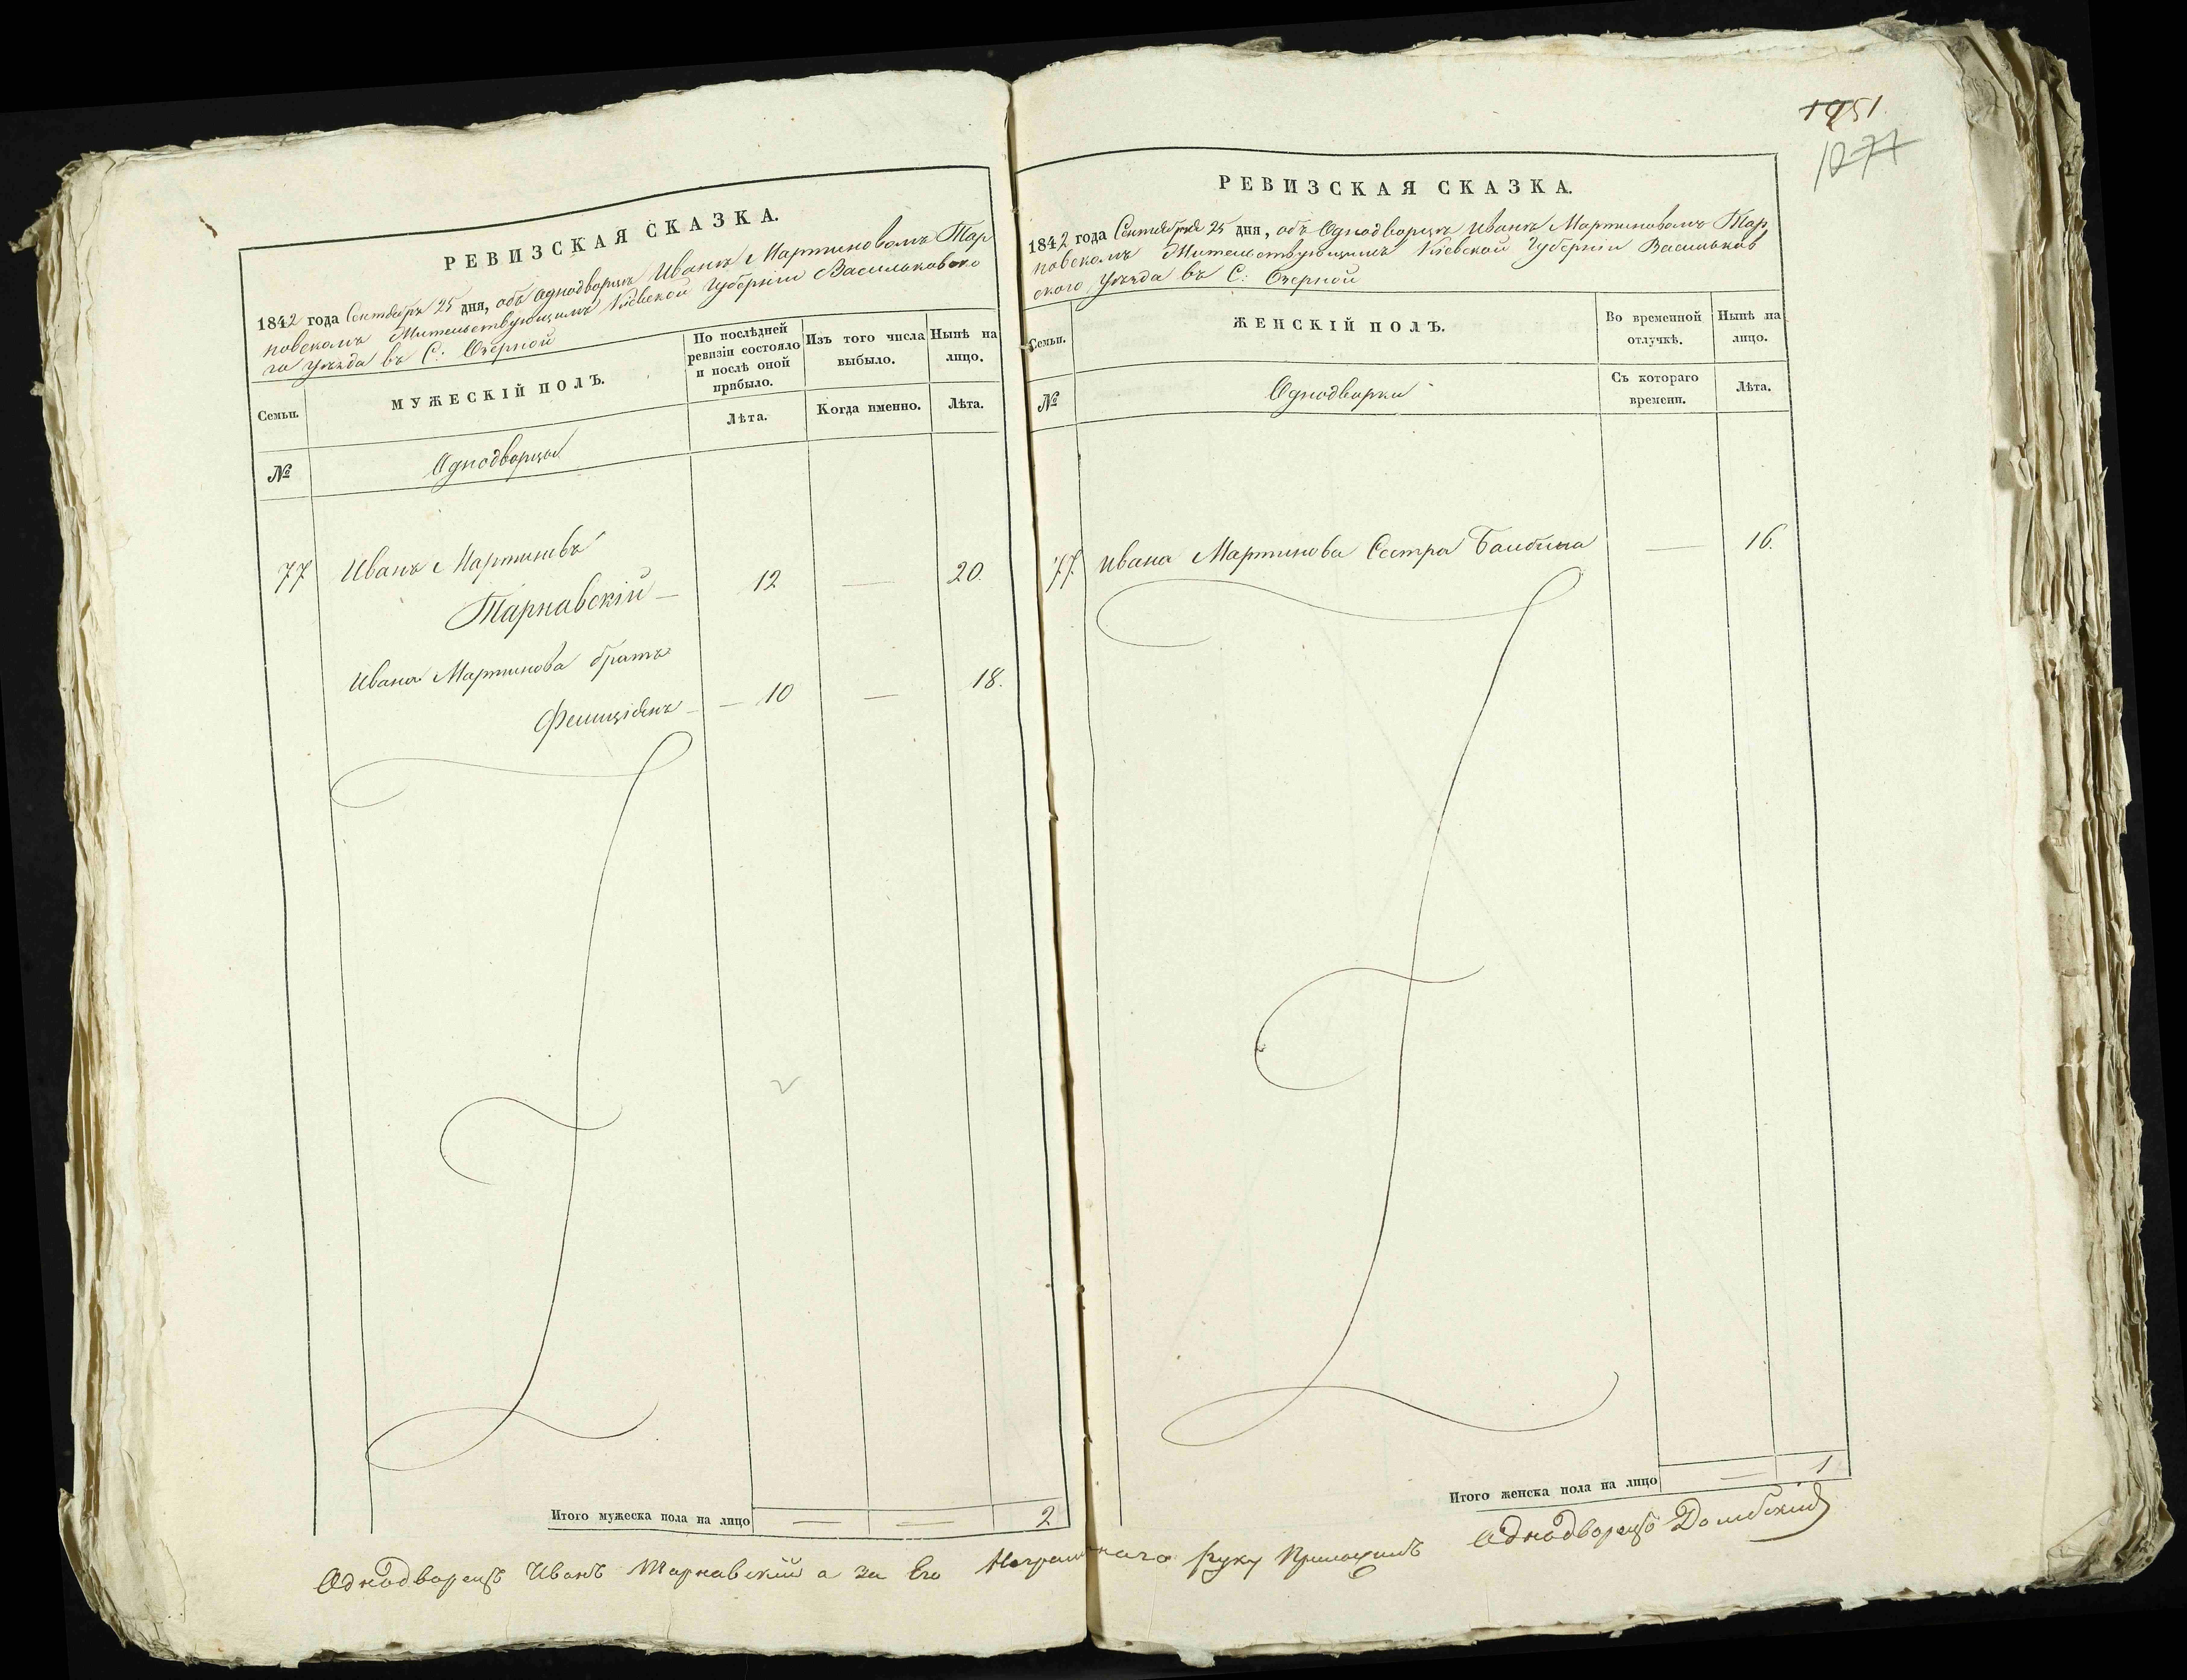 РЕВИЗСКАЯ СКАЗКА.
1842 года Сентября 25 дня, объ Однодворцѣ Иванѣ Мартиновомъ Тар
новскомъ Жительствующимъ Кіевской Губерніи Васильковско
го уѣзда въ С: Озерной
Семьи.
МУЖЕСКІЙ ПОЛЪ.
По послѣдней ревизіи состояло и послѣ оной прибыло.
Изъ того числа выбыло.
Нынѣ на лицо.
№
Однодворцы
Лѣта.
Когда именно.
Лѣта.
77 Иванъ Мартиновъ
Тарнавскій — 12 — 20.
Ивана Мартинова братъ
Фелиціянъ — 10 — 18.
Итого мужеска пола на лицо — — 2
1951
1277
РЕВИЗСКАЯ СКАЗКА.
1842 года Сентября 25 дня, объ Однодворцѣ Иванѣ Мартиновомъ Тар
новскомъ Жительствующимъ Кіевской Губерніи Васильков
ского уѣзда въ С: Озерной
Семьи.
ЖЕНСКІЙ ПОЛЪ.
Во временной отлучкѣ.
Нынѣ на лицо.
№
Однодворки
Съ котораго времени.
Лѣта.
77. Ивана Мартинова Сестра Балбина — 16.
Итого женска пола на лицо — 1
Однодворецъ Иванъ Тарнавский а за Его Неграмотнаго руку Приложилъ Однодворецъ Домбский